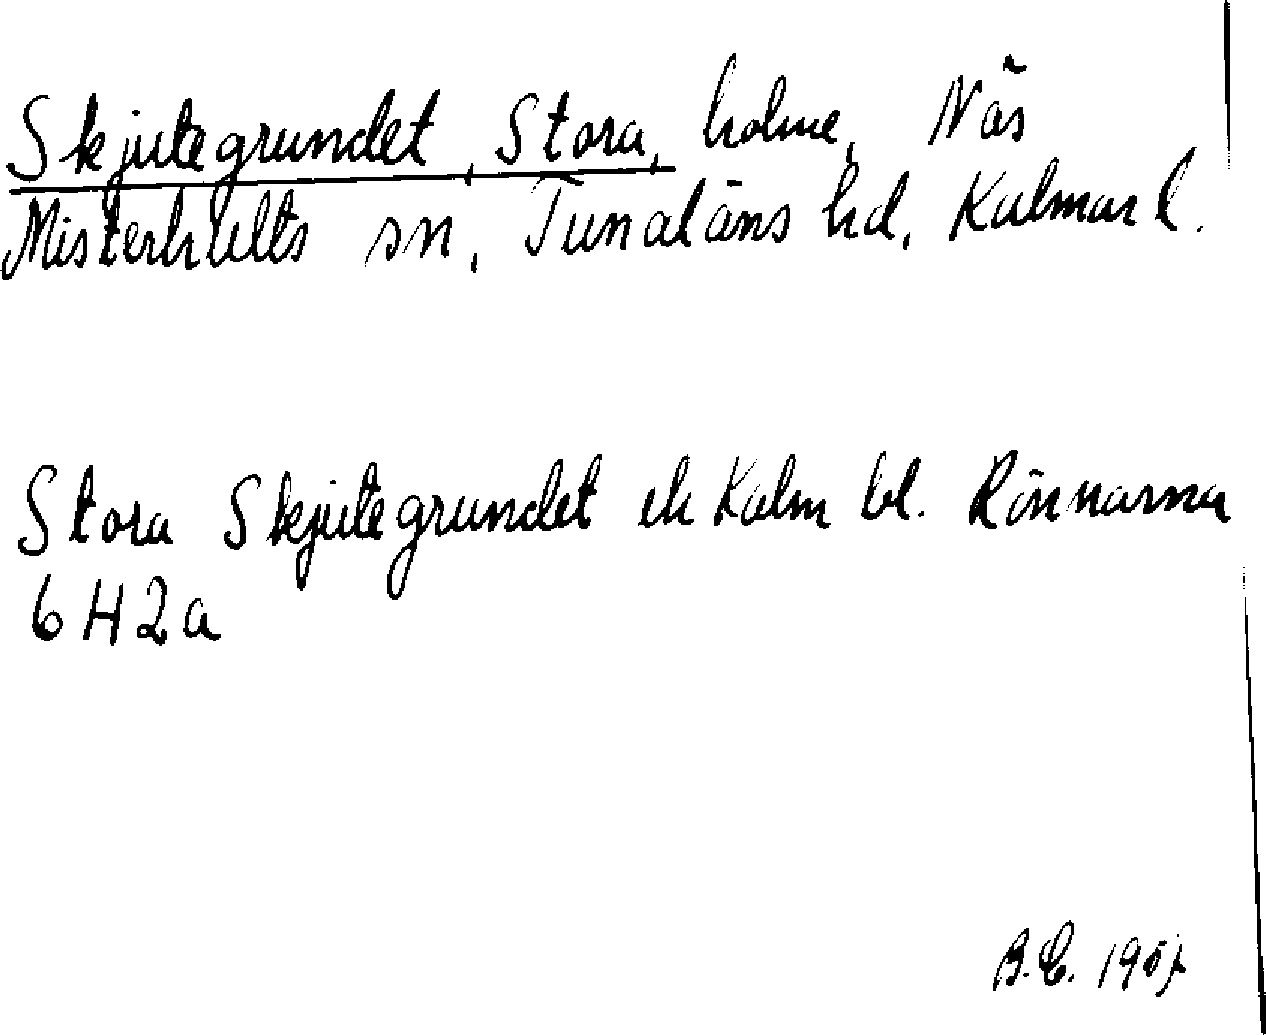 Skjutegrundet, Stora, holme, Näs
Misterhults sn, Tunaläns hd, Kalmar l.
Stora Skjutegrundet ek Kalm bl. Rönnarna
6H2a
B.E. 1957